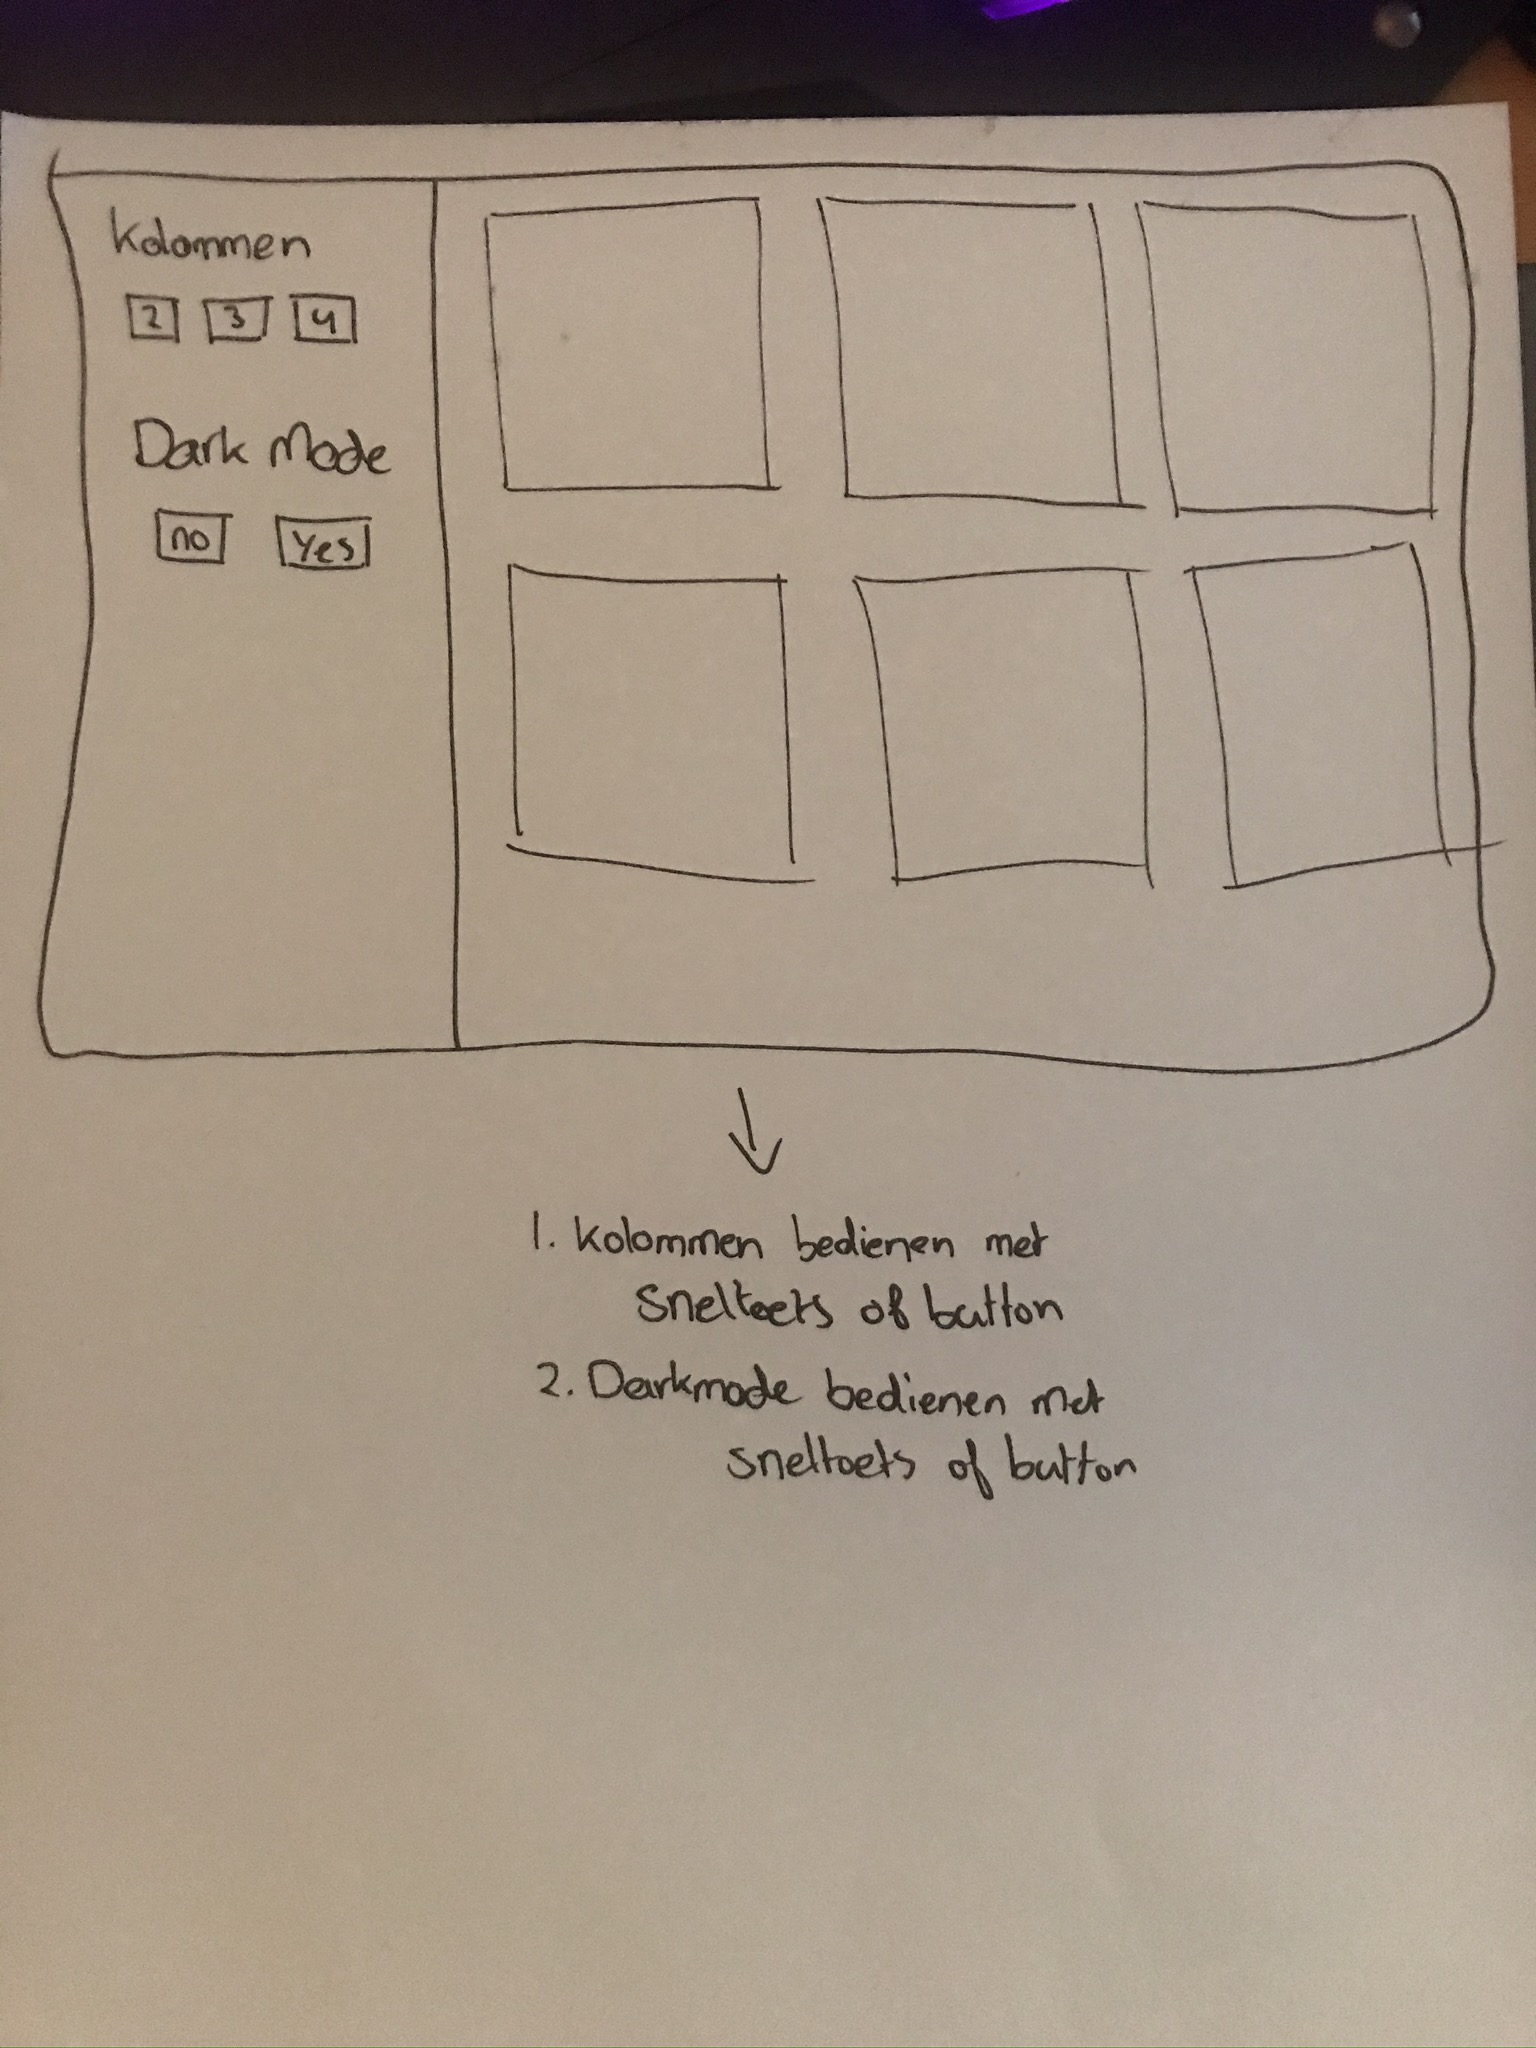 Kolommen
2 3 4
Dark Mode
no Yes
1. Kolommen bedienen met
Sneltoets of button
2. Darkmode bedienen met
sneltoets of button